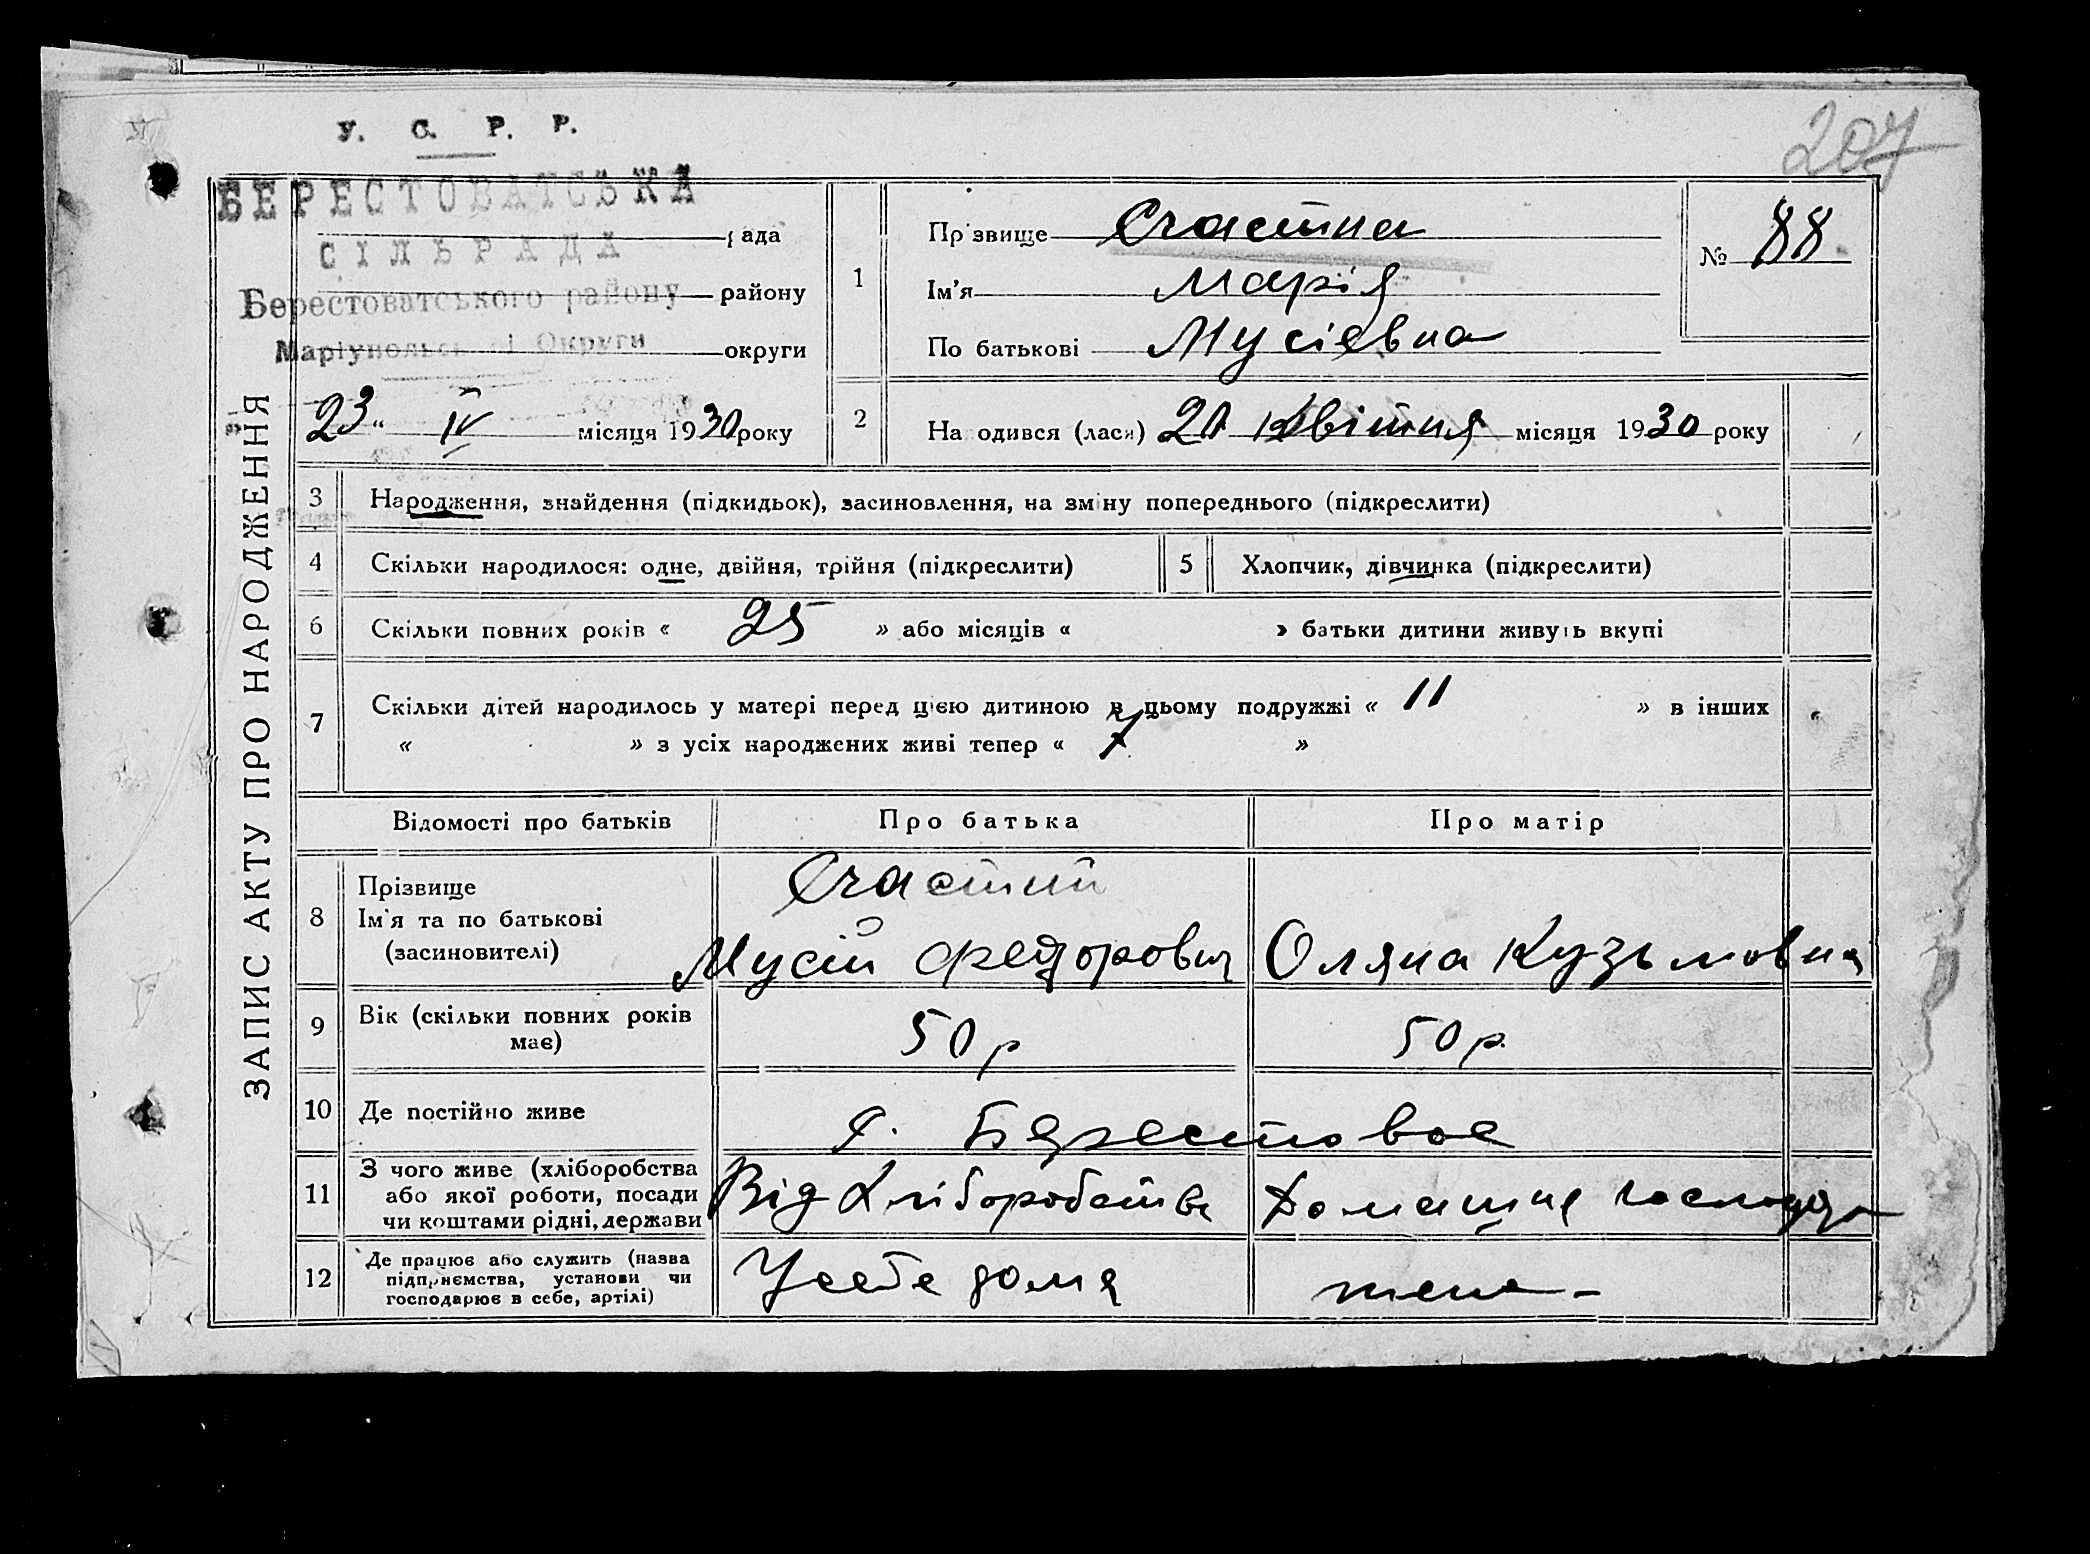 207
У. С. Р. Р.
БЕРЕСТОВАТСЬКА
рада
СІЛЬРАДА
Берестоватського району району
Маріупольської Округи округи
23 " IV місяця 1930 року
ЗАПИС АКТУ ПРО НАРОДЖЕННЯ
1 Прізвище Счастна
Ім'я Марія
По батькові Мусіевна
№ 88
2 Народився (лася) 20 Квітня місяця 1930 року
3 Народження, знайдення (підкидьок), засиновлення, на зміну попереднього (підкреслити)
4 Скільки народилося: одне, двійня, трійня (підкреслити) 5 Хлопчик, дівчинка (підкреслити)
6 Скільки повних років « 25 » або місяців « » батьки дитини живуть вкупі
7 Скільки дітей народилось у матері перед цією дитиною в цьому подружжі « 11 » в інших
« » з усіх народжених живі тепер « 7 »
Відомості про батьків Про батька Про матір
8 Прізвище
Ім'я та по батькові
(засиновителі)
Счастний
Мусій Федорович Оляна Кузьмовна
9 Вік (скільки повних років
має)
50 р 50 р.
10 Де постійно живе с. Берестовое
11 З чого живе (хліборобства
або якої роботи, посади
чи коштами рідні, держави
Від Хліборобства Домашня господар
12 Де працює або служить (назва
підприємства, установи чи
господарює в себе, артілі)
У себе дома